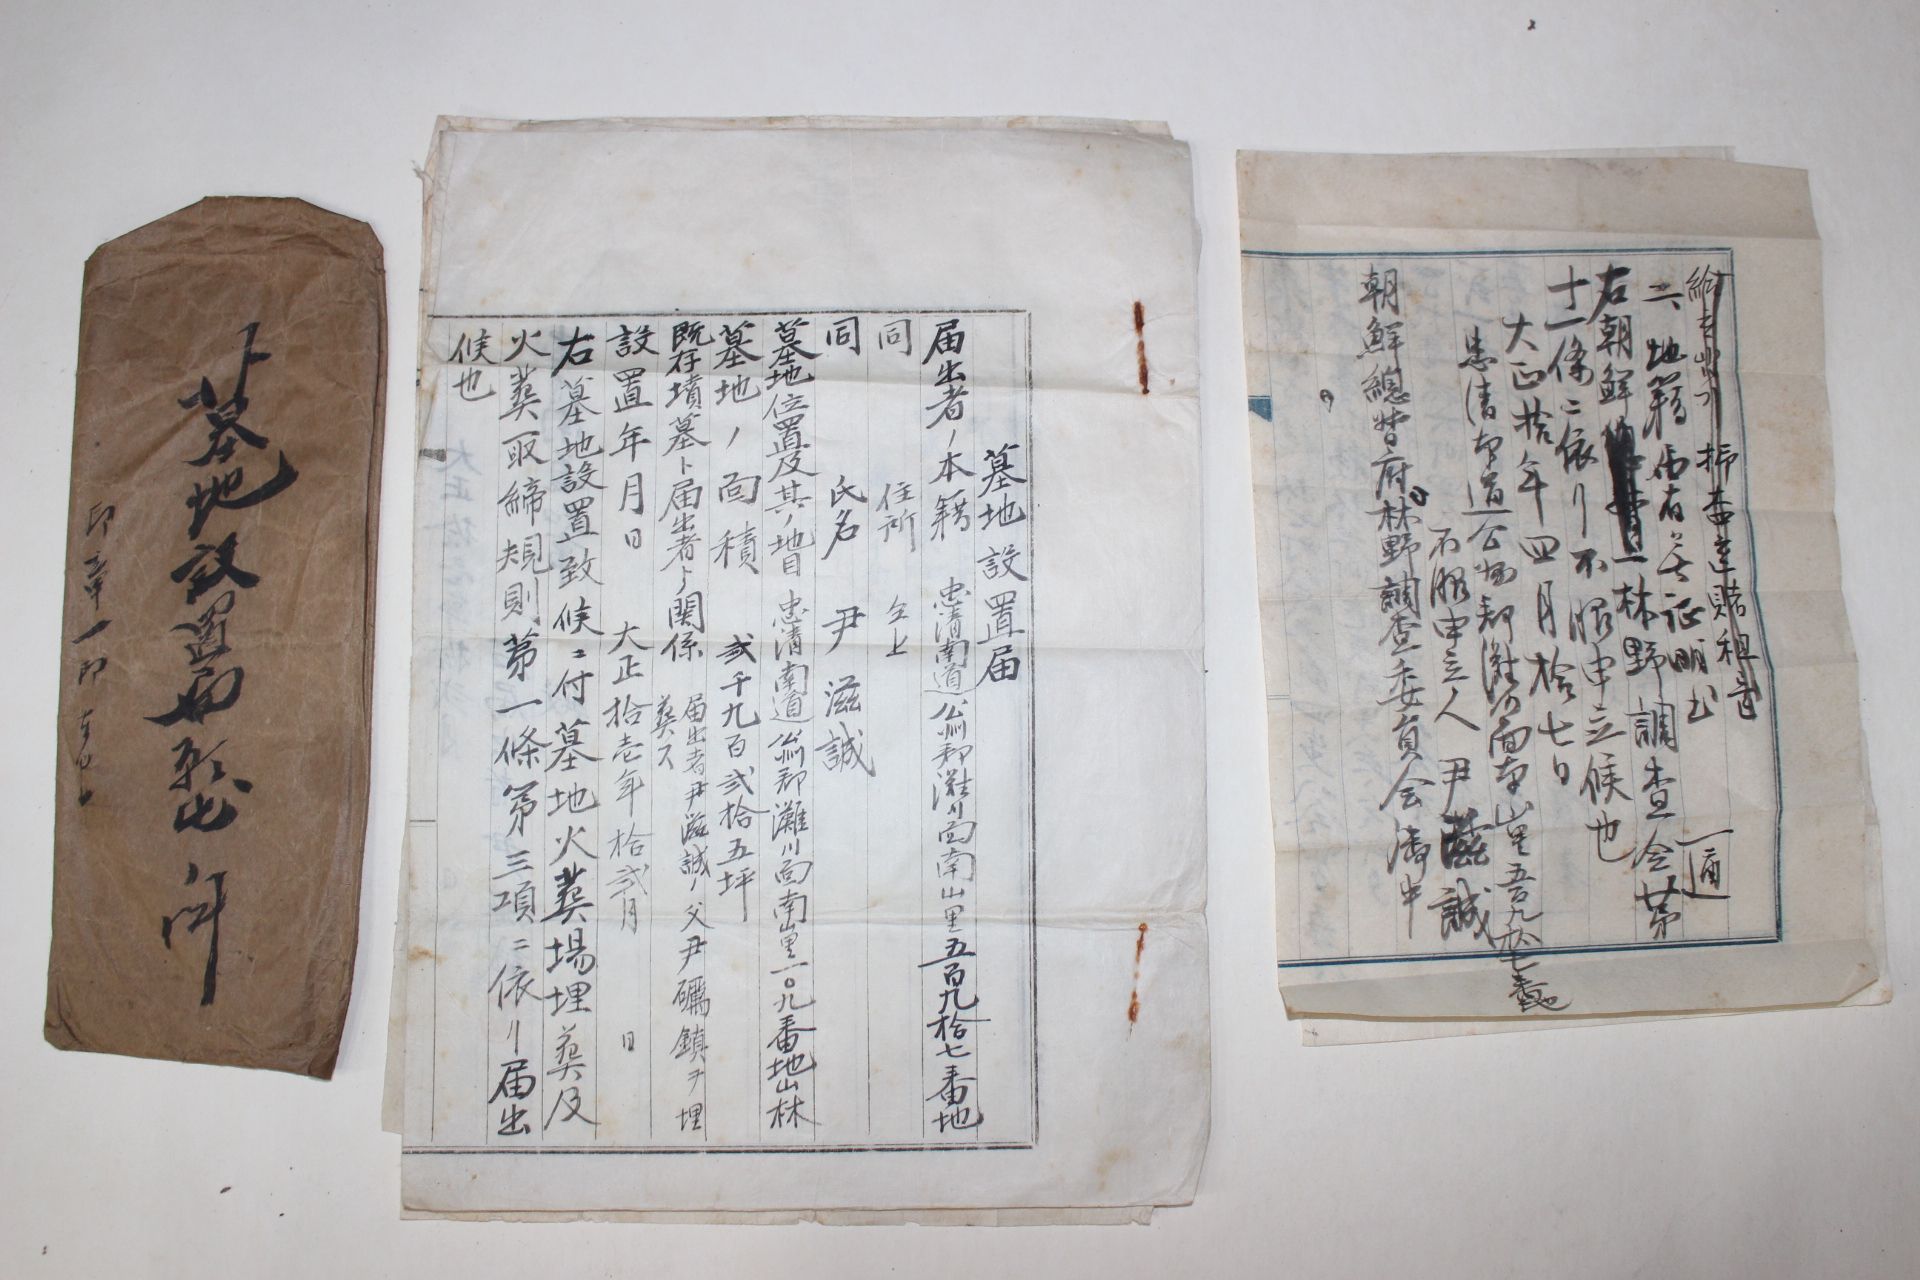 墓地設置届
印章一
墓地設置届
届出者ノ本籍 忠清南道公州郡灘川面南山里五百九拾七番地
同 住所 仝上
同 氏名 尹滋誠
墓地位置及其ノ地目 忠清南道公州郡灘川面南山里一〇九番地山林
墓地ノ面積 貳千九百貳拾五坪
既存墳墓ト届出者トノ関係 届出者尹滋誠ノ父尹礪鎮ヲ埋
葬ス
設置年月日 大正拾壱年拾貳月 日
右墓地設置致候ニ付墓地火葬場埋葬及
火葬取締規則第一條第三項ニ依リ届出
候也
一通
右朝鮮 林野調査令第
十一條ニ依リ不服申立候也
大正拾年四月拾七日
忠清南道公州郡灘川面南山里五百九拾七番地
不服申立人 尹滋誠
朝鮮總督府林野調査委員会御中